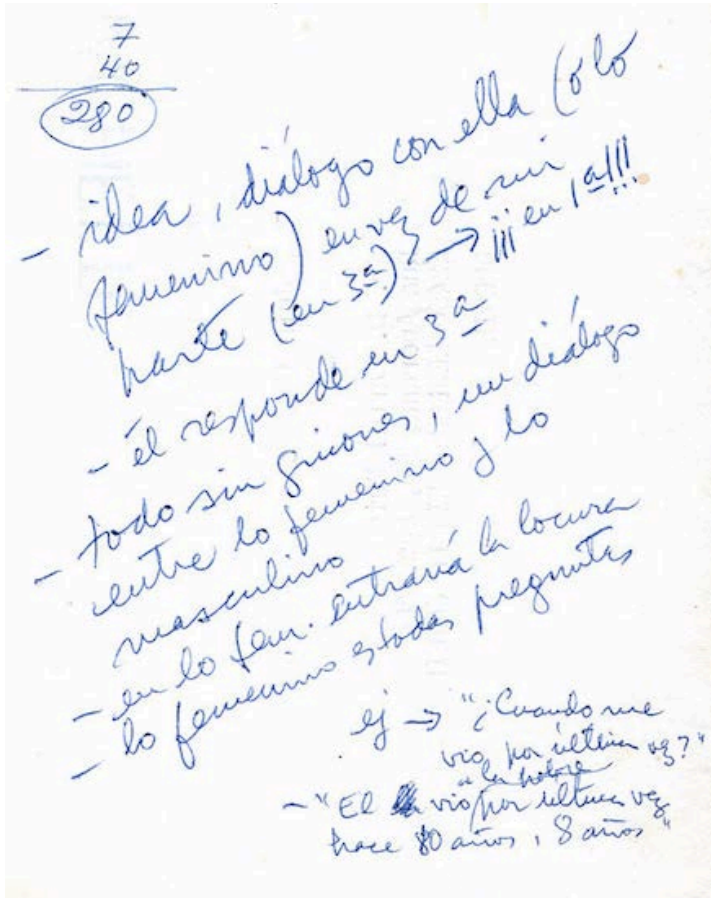 7
40
280
- idea, diálogo con ella (o lo
femenino) en vez de mi
parte (en 3ª) → ¡¡¡en 1ª!!!
- él responde en 3ª
- todo sin guiones, un diálogo
entre lo femenino y lo
masculino
- en lo fem. entrará la locura
- lo femenino es todas preguntas
ej → "¿Cuando me
vio por última vez?"
"la pobre
- "El vio por última vez
hace 80 años, 8 años"